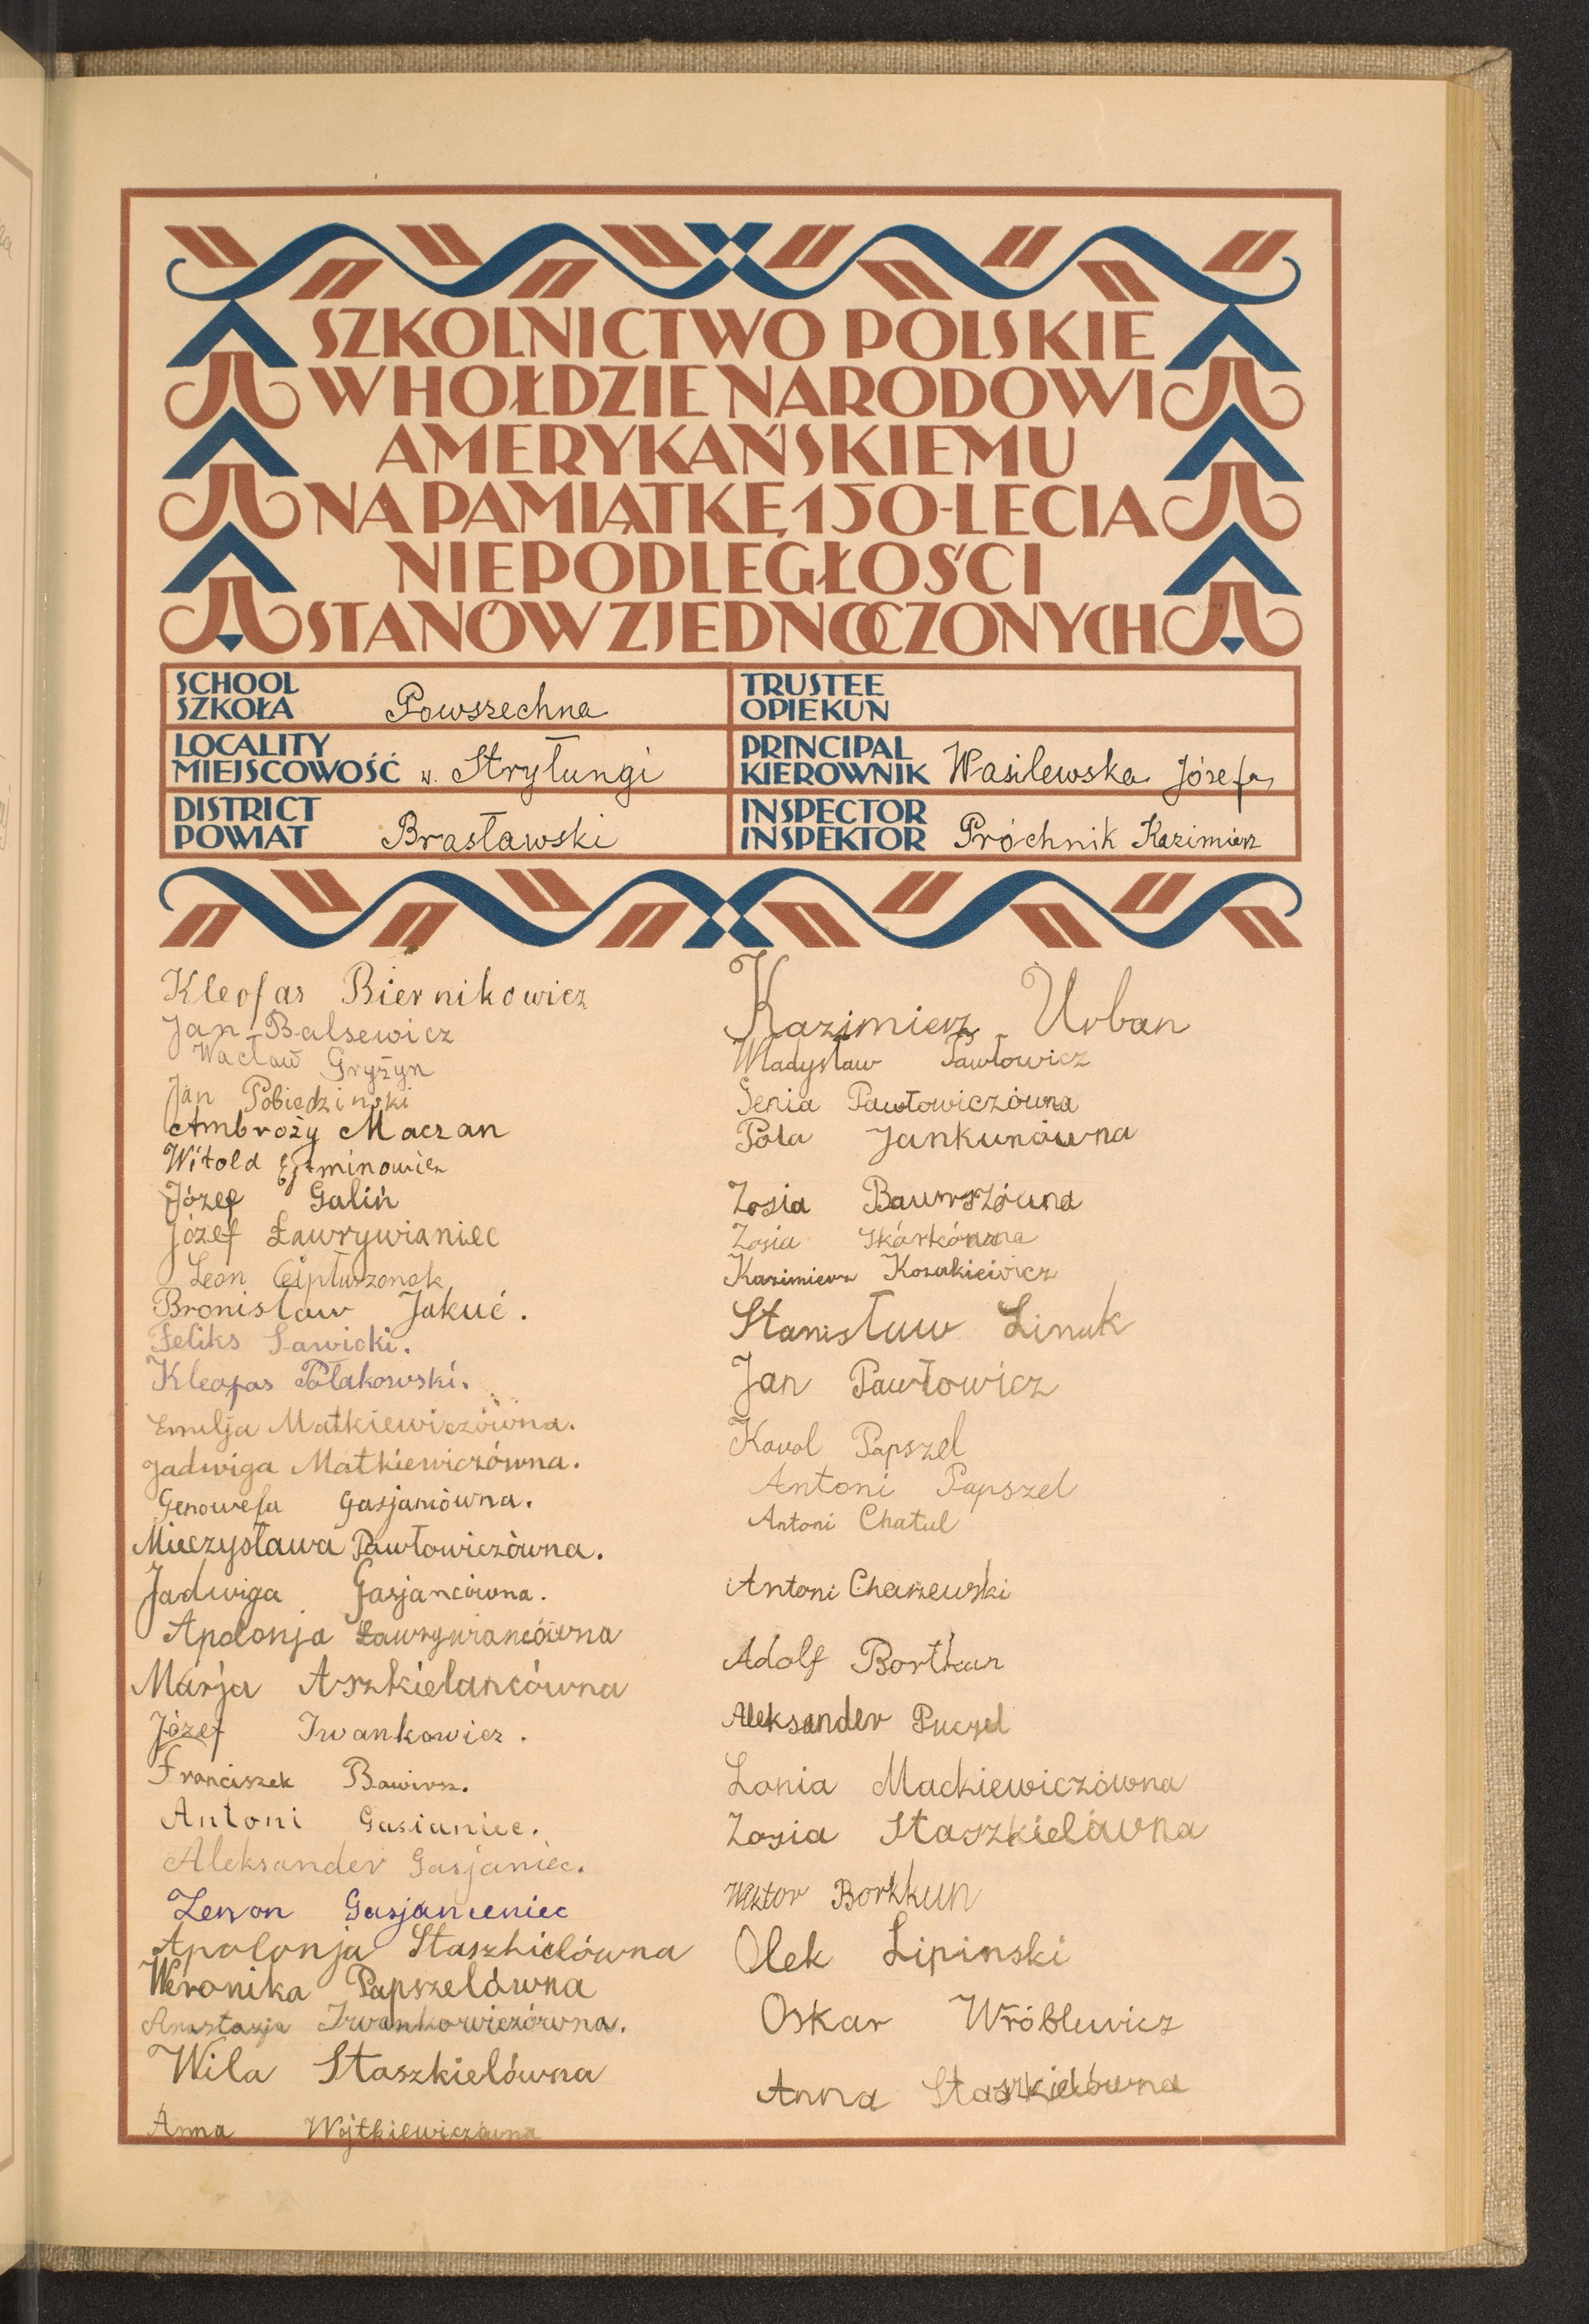 SZKOLNICTWO POLSKIE
W HOŁDZIE NARODOWI
AMERYKAŃSKIEMU
NA PAMIĄTKĘ 150-LECIA
NIEPODLEGŁOŚCI
STANÓW ZJEDNOCZONYCH
SCHOOL
SZKOŁA Powszechna
TRUSTEE
OPIEKUN
LOCALITY
MIEJSCOWOŚĆ w. Stryłungi
PRINCIPAL
KIEROWNIK Wasilewska Józefa
DISTRICT
POWIAT Brasławski
INSPECTOR
INSPEKTOR Próchnik Kazimierz
Kleofas Biernikowicz
Jan Balsewicz
Wacław Gryżyn
Jan Pobiedzinski
Ambroży Maczan
Witold
Józef Galiń
Józef Ławrywianiec
Leon
Bronisław Jakuć.
Feliks Sawicki.
Kleofas Polakowski.
Emilja Matkiewiczówna.
Jadwiga Matkiewiczówna.
Genowefa Gasjancówna.
Mieczysława Pawłowiczówna.
Jadwiga Gasjancówna.
Apolonja Ławrywiancówna
Marja Aszkielancówna
Józef Iwankowicz.
Franciszek
Antoni Gasianiec.
Aleksander Gasjaniec.
Zenon
Apolonja Staszkielówna
Weronika Papszelówna
Anastazja Iwankowiczówna.
Wila Staszkielówna
Anna Wojtkiewiczówna
Kazimierz Urban
Władysław Pawłowicz
Genia Pawłowiczówna
Pola Jankunówna
Zosia
Zosia
Kazimierz
Stanisław Linuk
Jan Pawłowicz
Karol Papszel
Antoni Papszel
Antoni Chatul
Antoni
Adolf Bortkun
Aleksander
Lonia Mackiewiczówna
Zosia Staszkielówna
Wiktor Bortkun
Olek Lipinski
Oskar Wróblewicz
Anna Staszkielówna